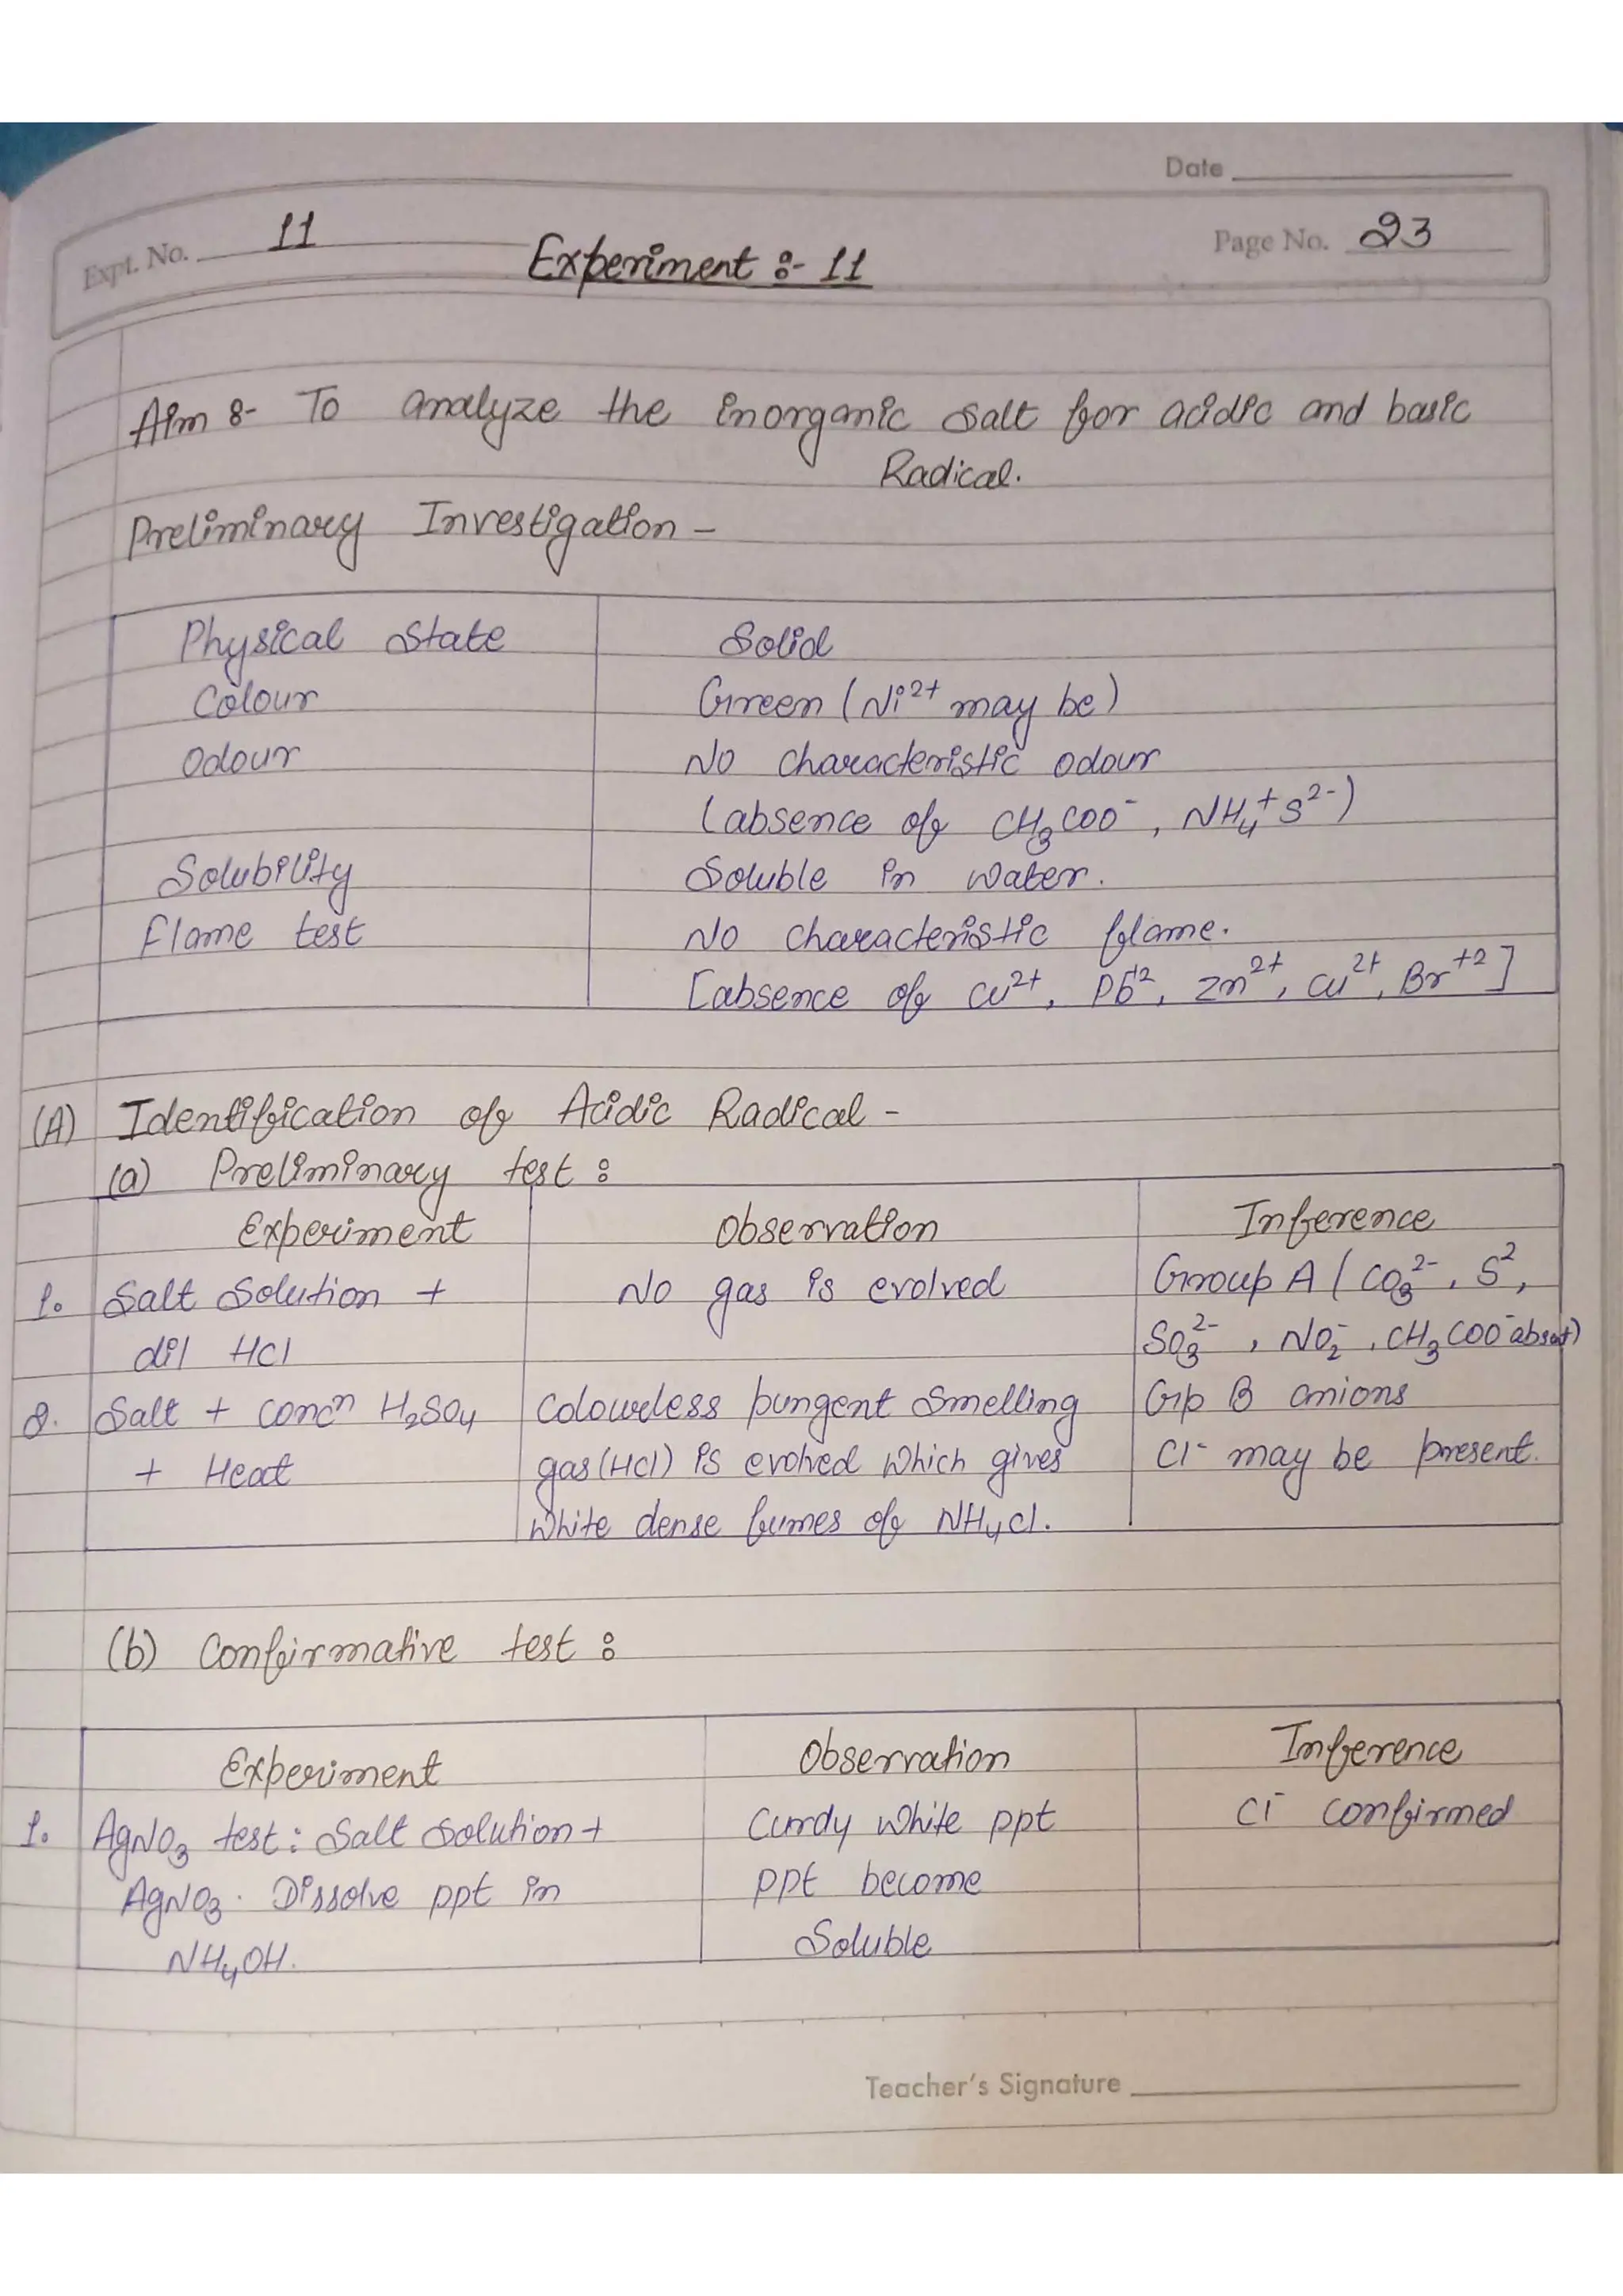 Date
Expt. No. 11
Experiment :- 11
Page No. 23
Aim :- To analyze the inorganic salt for acidic and basic
Radical.
Preliminary Investigation -
Physical State Solid
Colour Green (Ni²⁺ may be)
Odour No characteristic odour
(absence of CH₃COO⁻, NH₄⁺ S²⁻)
Solubility Soluble in water.
Flame test No characteristic flame.
[absence of Cu²⁺, Pb⁺², Zn²⁺, Cu²⁺, Br⁺²]
(A) Identification of Acidic Radical -
(a) Preliminary test :
Experiment Observation Inference
1. Salt Solution + No gas is evolved Group A ( CO₃²⁻, S²,
dil HCl SO₃²⁻, NO₂⁻, CH₃COO⁻ absent)
2. Salt + concⁿ H₂SO₄ Colourless pungent smelling Grp B anions
+ Heat gas (HCl) is evolved which gives Cl⁻ may be present.
white dense fumes of NH₄Cl.
(b) Confirmative test :
Experiment Observation Inference
1. AgNO₃ test : Salt solution + Curdy white ppt Cl⁻ confirmed
AgNO₃. Dissolve ppt in ppt become
NH₄OH. Soluble
Teacher's Signature